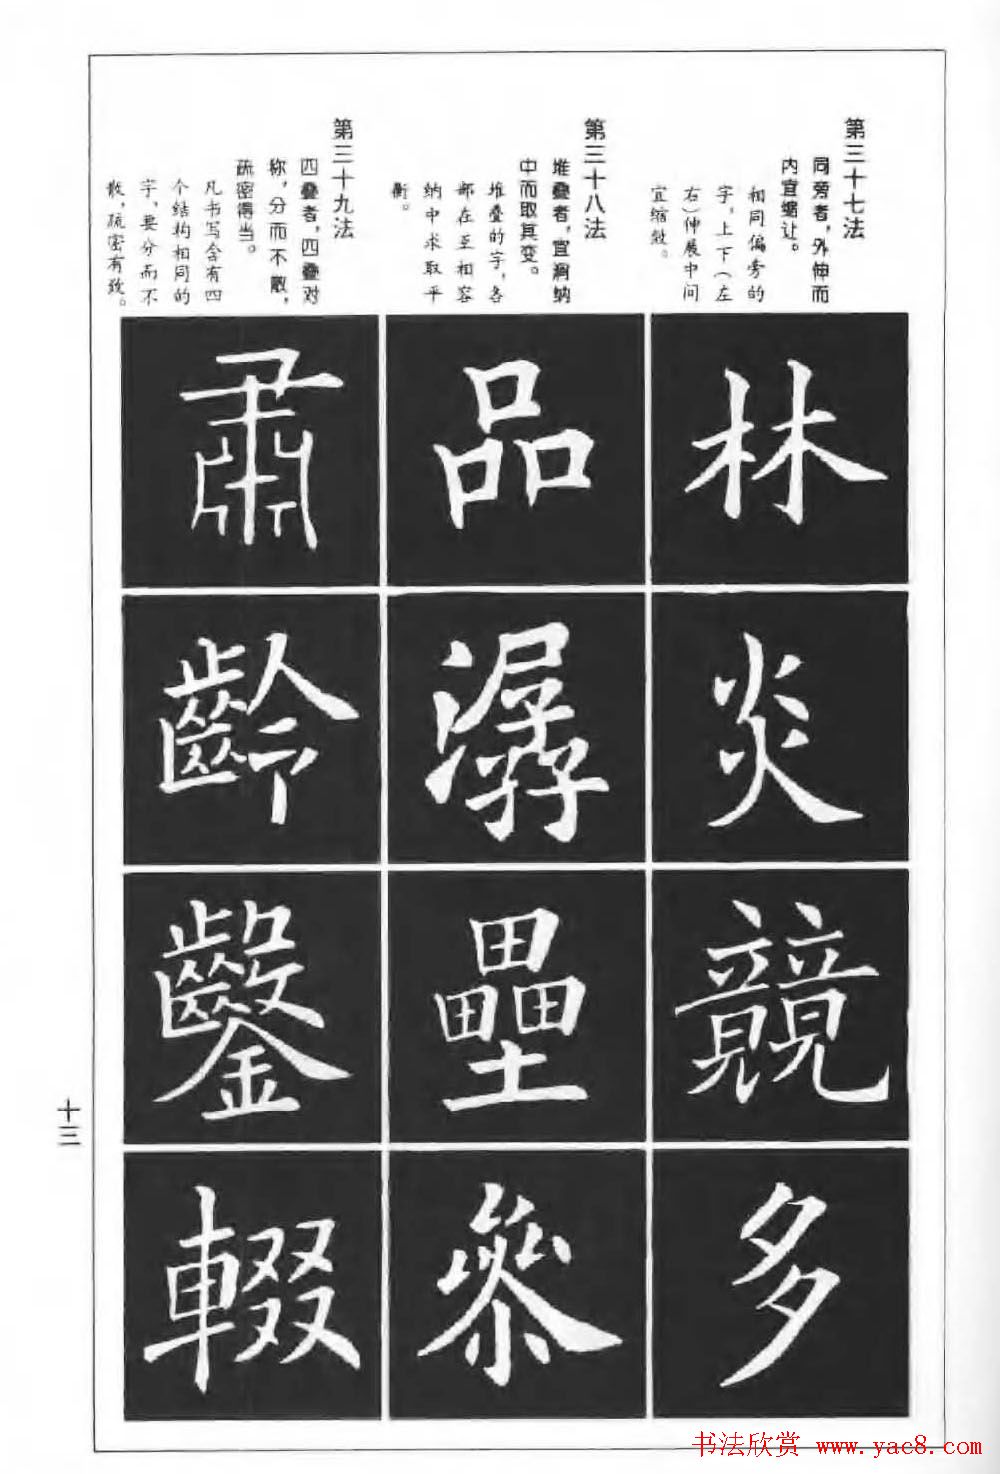 第三十七法
同旁者，外伸而
内宜缩让。
相同偏旁的
字，上下（左
右）伸展中间
宜缩敛。
林
炎
競
多
第三十八法
堆叠者，宜涧纳
中而取其变。
堆叠的字，各
部在互相容
纳中求取平
衡。
品
潺
壘
叅
第三十九法
四叠者，四叠对
称，分而不散，
疏密得当。
凡书写含有四
个结构相同的
字，要分而不
散，疏密有致。
肅
齡
鑿
輟
十三
书法欣赏 www.yac8.com